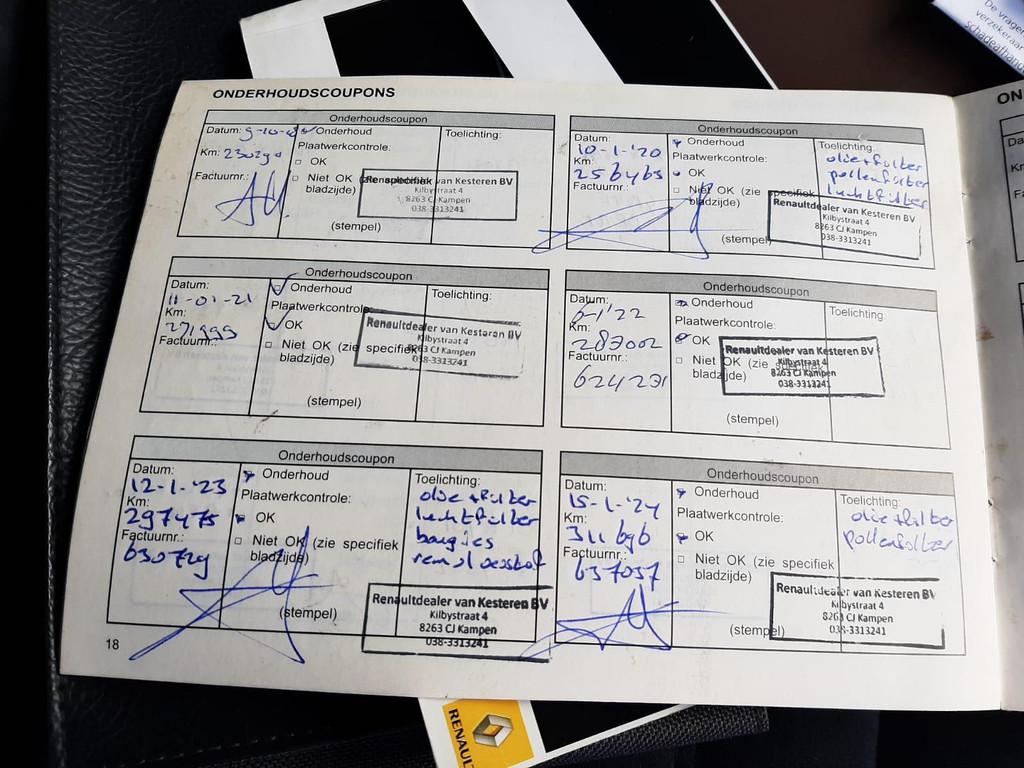 De vragen
verzekeraar
schadeafhand
ONDERHOUDSCOUPONS
Onderhoudscoupon
Datum:
Km: 230290
Factuurnr.:
Onderhoud
Plaatwerkcontrole:
OK
Niet OK
bladzijde)
(stempel)
Toelichting:
van Kesteren BV
Kilbystraat 4
8263 CJ Kampen
038-3313241
Onderhoudscoupon
Datum:
10-1-'20
Km:
256465
Factuurnr.:
Onderhoud
Plaatwerkcontrole:
OK
Niet OK (zie specifiek
bladzijde)
(stempel)
Toelichting:
olie+filter
pollenfilter
luchtfilter
Renaultdealer van Kesteren BV
Kilbystraat 4
8263 CJ Kampen
038-3313241
Onderhoudscoupon
Datum:
11-01-21
Km:
271999
Factuurnr.:
Onderhoud
Plaatwerkcontrole:
OK
Niet OK (zie specifiek
bladzijde)
(stempel)
Toelichting:
Renaultdealer van Kesteren BV
Kilbystraat 4
8263 CJ Kampen
038-3313241
Onderhoudscoupon
Datum:
6-1-'22
Km:
287002
Factuurnr.:
624231
Onderhoud
Plaatwerkcontrole:
OK
Niet OK (zie specifiek
bladzijde)
(stempel)
Toelichting:
Renaultdealer van Kesteren BV
Kilbystraat 4
8263 CJ Kampen
038-3313241
Onderhoudscoupon
Datum:
12-1-'23
Km:
297475
Factuurnr.:
630729
Onderhoud
Plaatwerkcontrole:
OK
Niet OK (zie specifiek
bladzijde)
(stempel)
Toelichting:
olie+filter
luchtfilter
bougies
remvloeistof
Renaultdealer van Kesteren BV
Kilbystraat 4
8263 CJ Kampen
038-3313241
Onderhoudscoupon
Datum:
15-1-'24
Km:
311696
Factuurnr.:
637037
Onderhoud
Plaatwerkcontrole:
OK
Niet OK (zie specifiek
bladzijde)
(stempel)
Toelichting:
olie+filter
pollenfilter
Renaultdealer van Kesteren BV
Kilbystraat 4
8263 CJ Kampen
038-3313241
18
RENAUL
ON